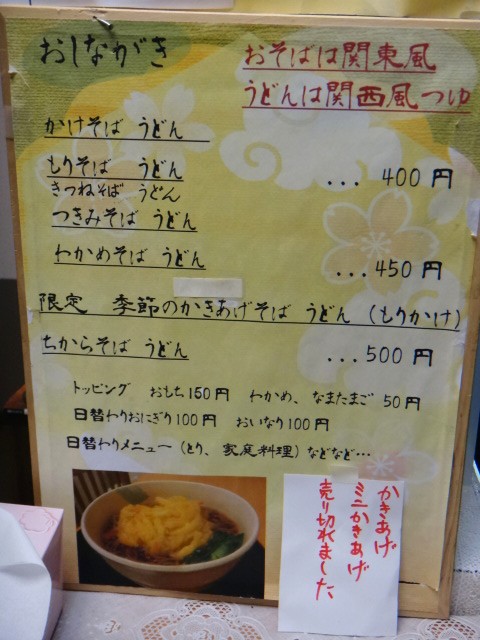 おしながき
おそばは関東風
うどんは関西風つゆ
かけそば うどん
もりそば うどん ... 400 円
きつねそば うどん
つきみそば うどん
わかめそば うどん ... 450 円
限定 季節のかきあげそば うどん (もりかけ)
ちからそば うどん ... 500 円
トッピング おもち 150 円 わかめ、なまたまご 50 円
日替わりおにぎり 100 円 おいなり 100 円
日替わりメニュー (とり、家庭料理) などなど…
かきあげ
ミニかきあげ
売り切れました